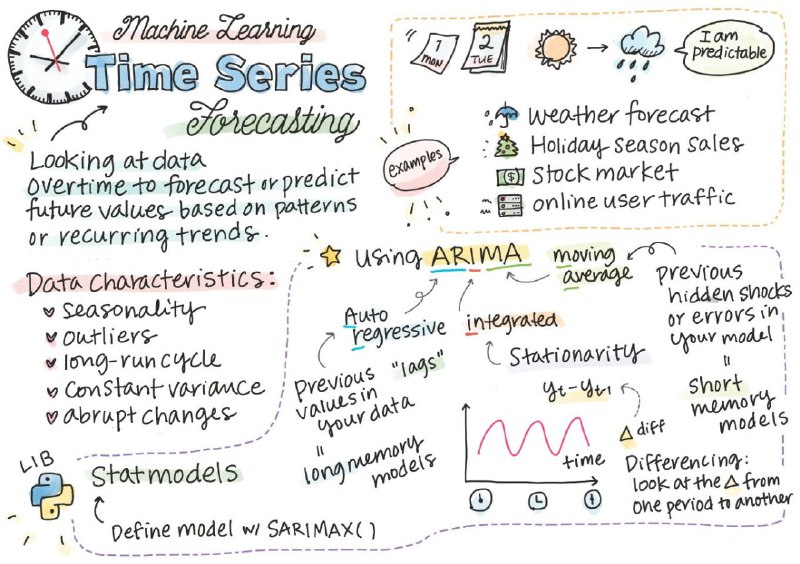 Machine Learning
Time Series
Forecasting
Looking at data
overtime to forecast or predict
future values based on patterns
or recurring trends.
Data Characteristics:
seasonality
outliers
long-run cycle
constant variance
abrupt changes
LIB
Statmodels
Define model w/ SARIMAX()
1
MON
2
TUE
I am
predictable
examples
weather forecast
Holiday season sales
$
Stock market
online user traffic
using ARIMA
Auto
regressive
Previous "lags"
values in
your data
=
long memory
models
integrated
Stationarity
yt-yt1
Δ diff
Differencing:
look at the Δ from
one period to another
time
moving
average
Previous
hidden shocks
or errors in
your model
=
short
memory
models